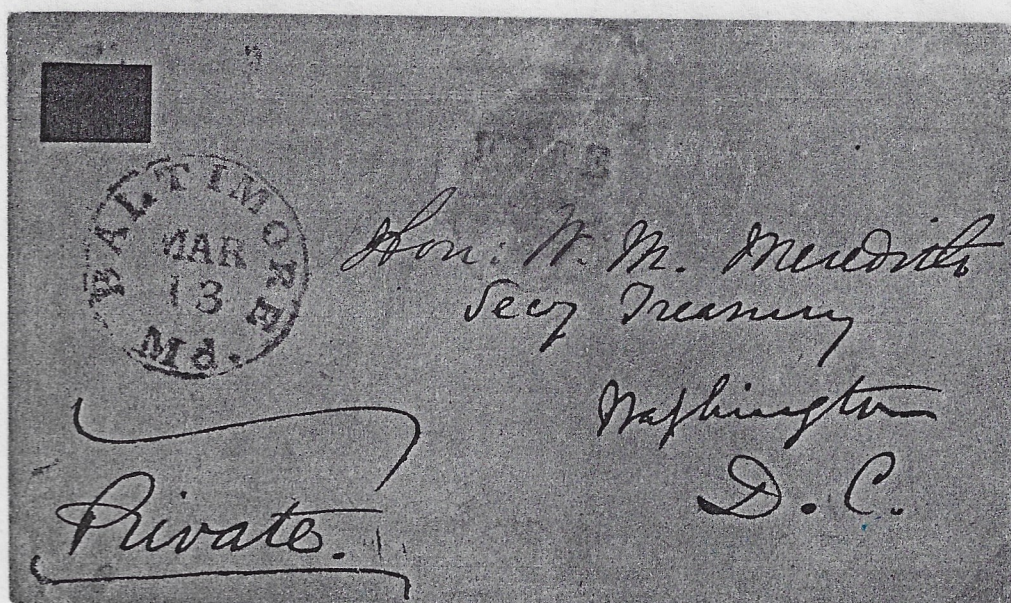 FREE
BALTIMORE Md.
MAR
13
Hon: W. M. Meredith
Secy Treasury
Washington
D. C.
Private.